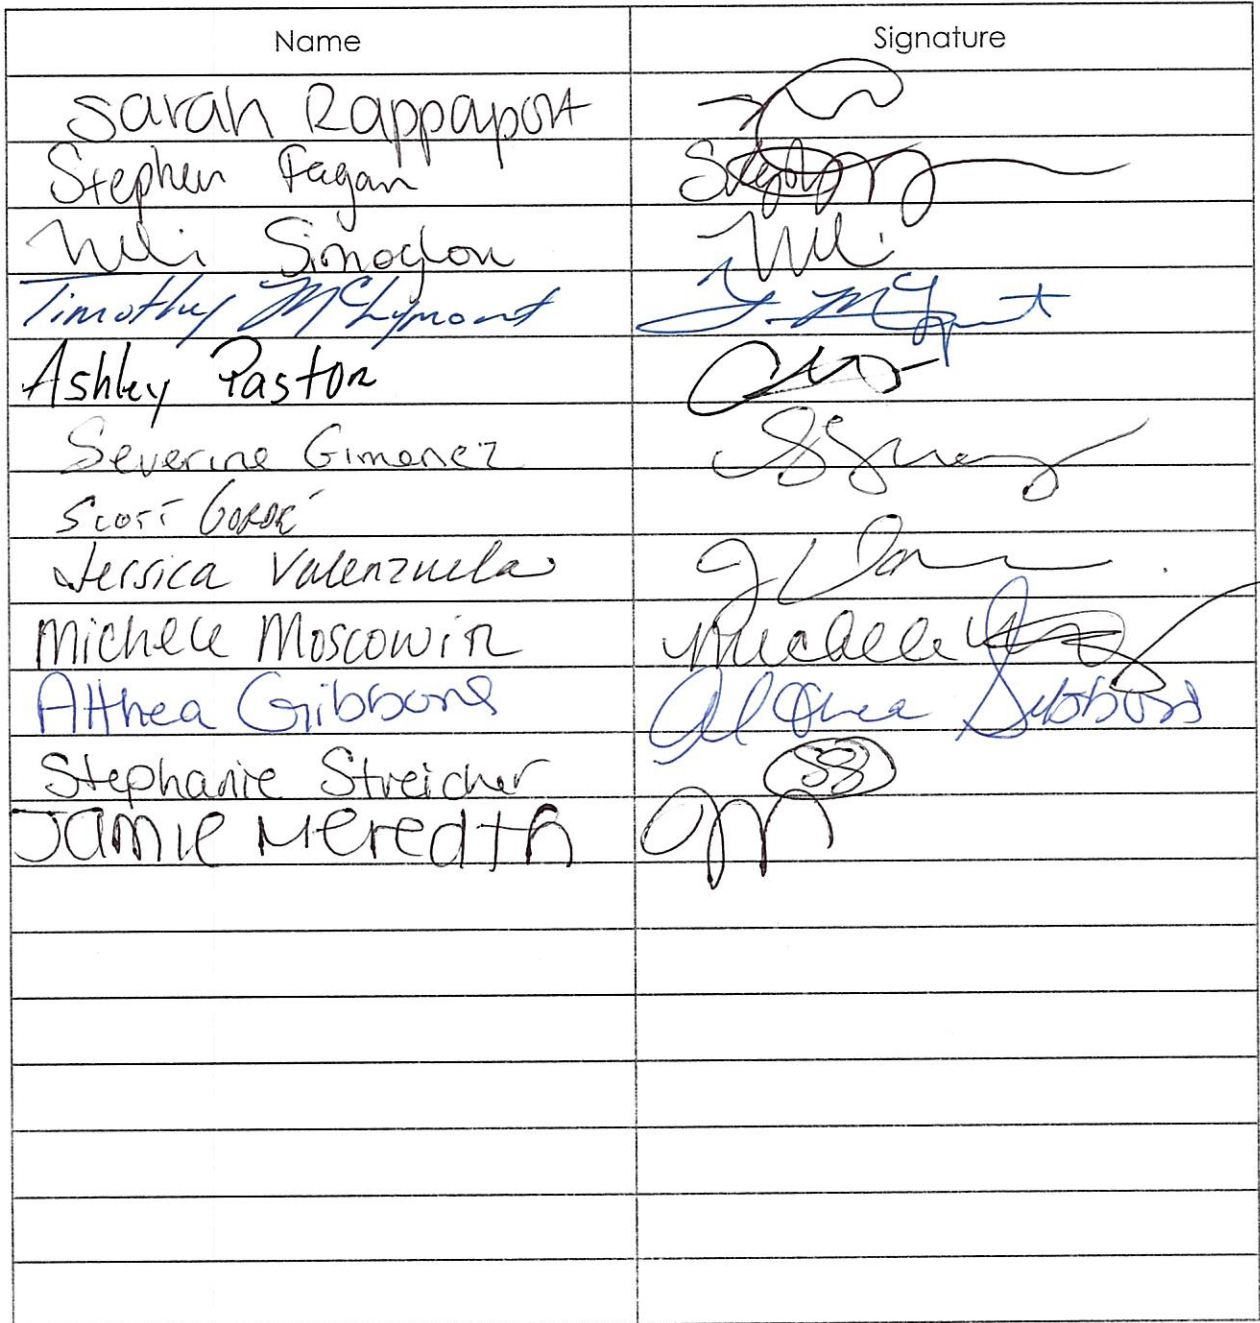 Name Signature
Sarah Rappaport
Stephen Fagan Stephen
Simoglou
Timothy McLymont T. McLymont
Ashley Pastor
Severine Gimenez
Scott
Jessica Valenzuela
Michele Moscowitz Michele
Althea Gibbons Althea Gibbons
Stephanie Streicher SS
Jamie Meredith JM